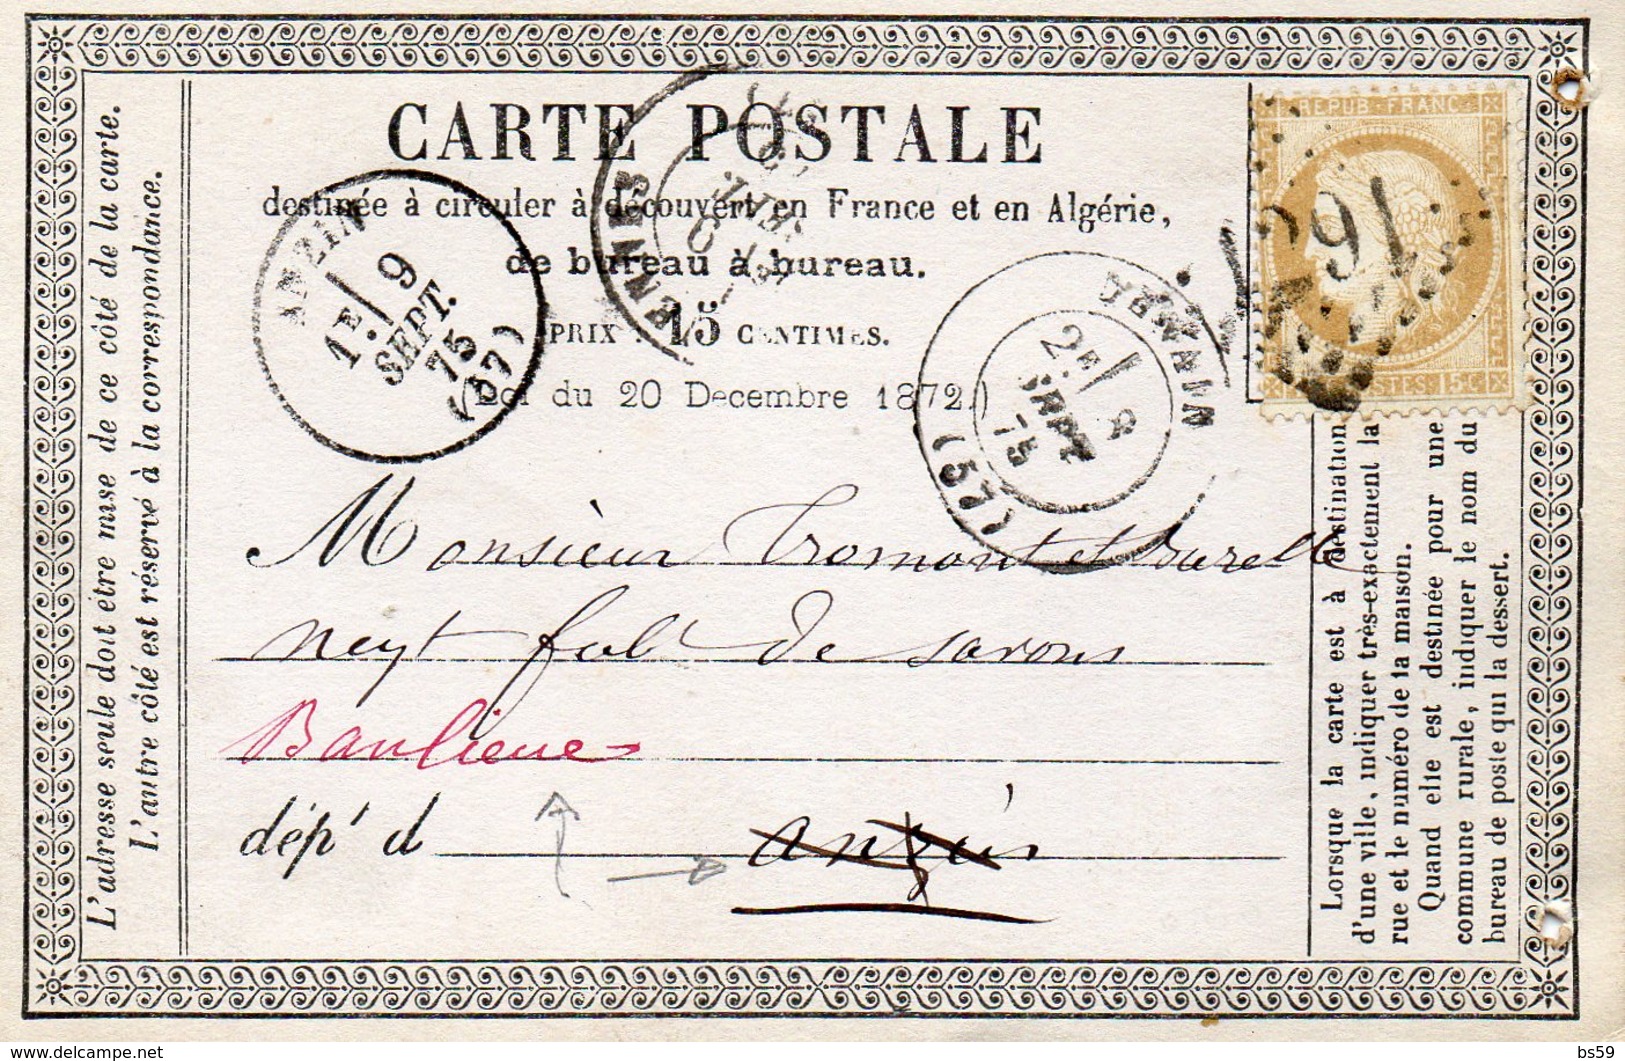 CARTE POSTALE
destinée à circuler à découvert en France et en Algérie,
de bureau à bureau.
PRIX : 15 CENTIMES.
(Loi du 20 Decembre 1872.)
REPUB. FRANC.
POSTES 15 C
ANZIN
1E 9
SEPT.
75
(57)
2E 8
SEPT
75
(57)
Monsieur Tromont et
négt fabt de savons
Banlieue
dépt d anzin
L'adresse seule doit être mise de ce côté de la carte.
L'autre côté est réservé à la correspondance.
Lorsque la carte est à destination
d'une ville, indiquer très-exactement la
rue et le numéro de la maison.
Quand elle est destinée pour une
commune rurale, indiquer le nom du
bureau de poste qui la dessert.
delcampe.net
bs59